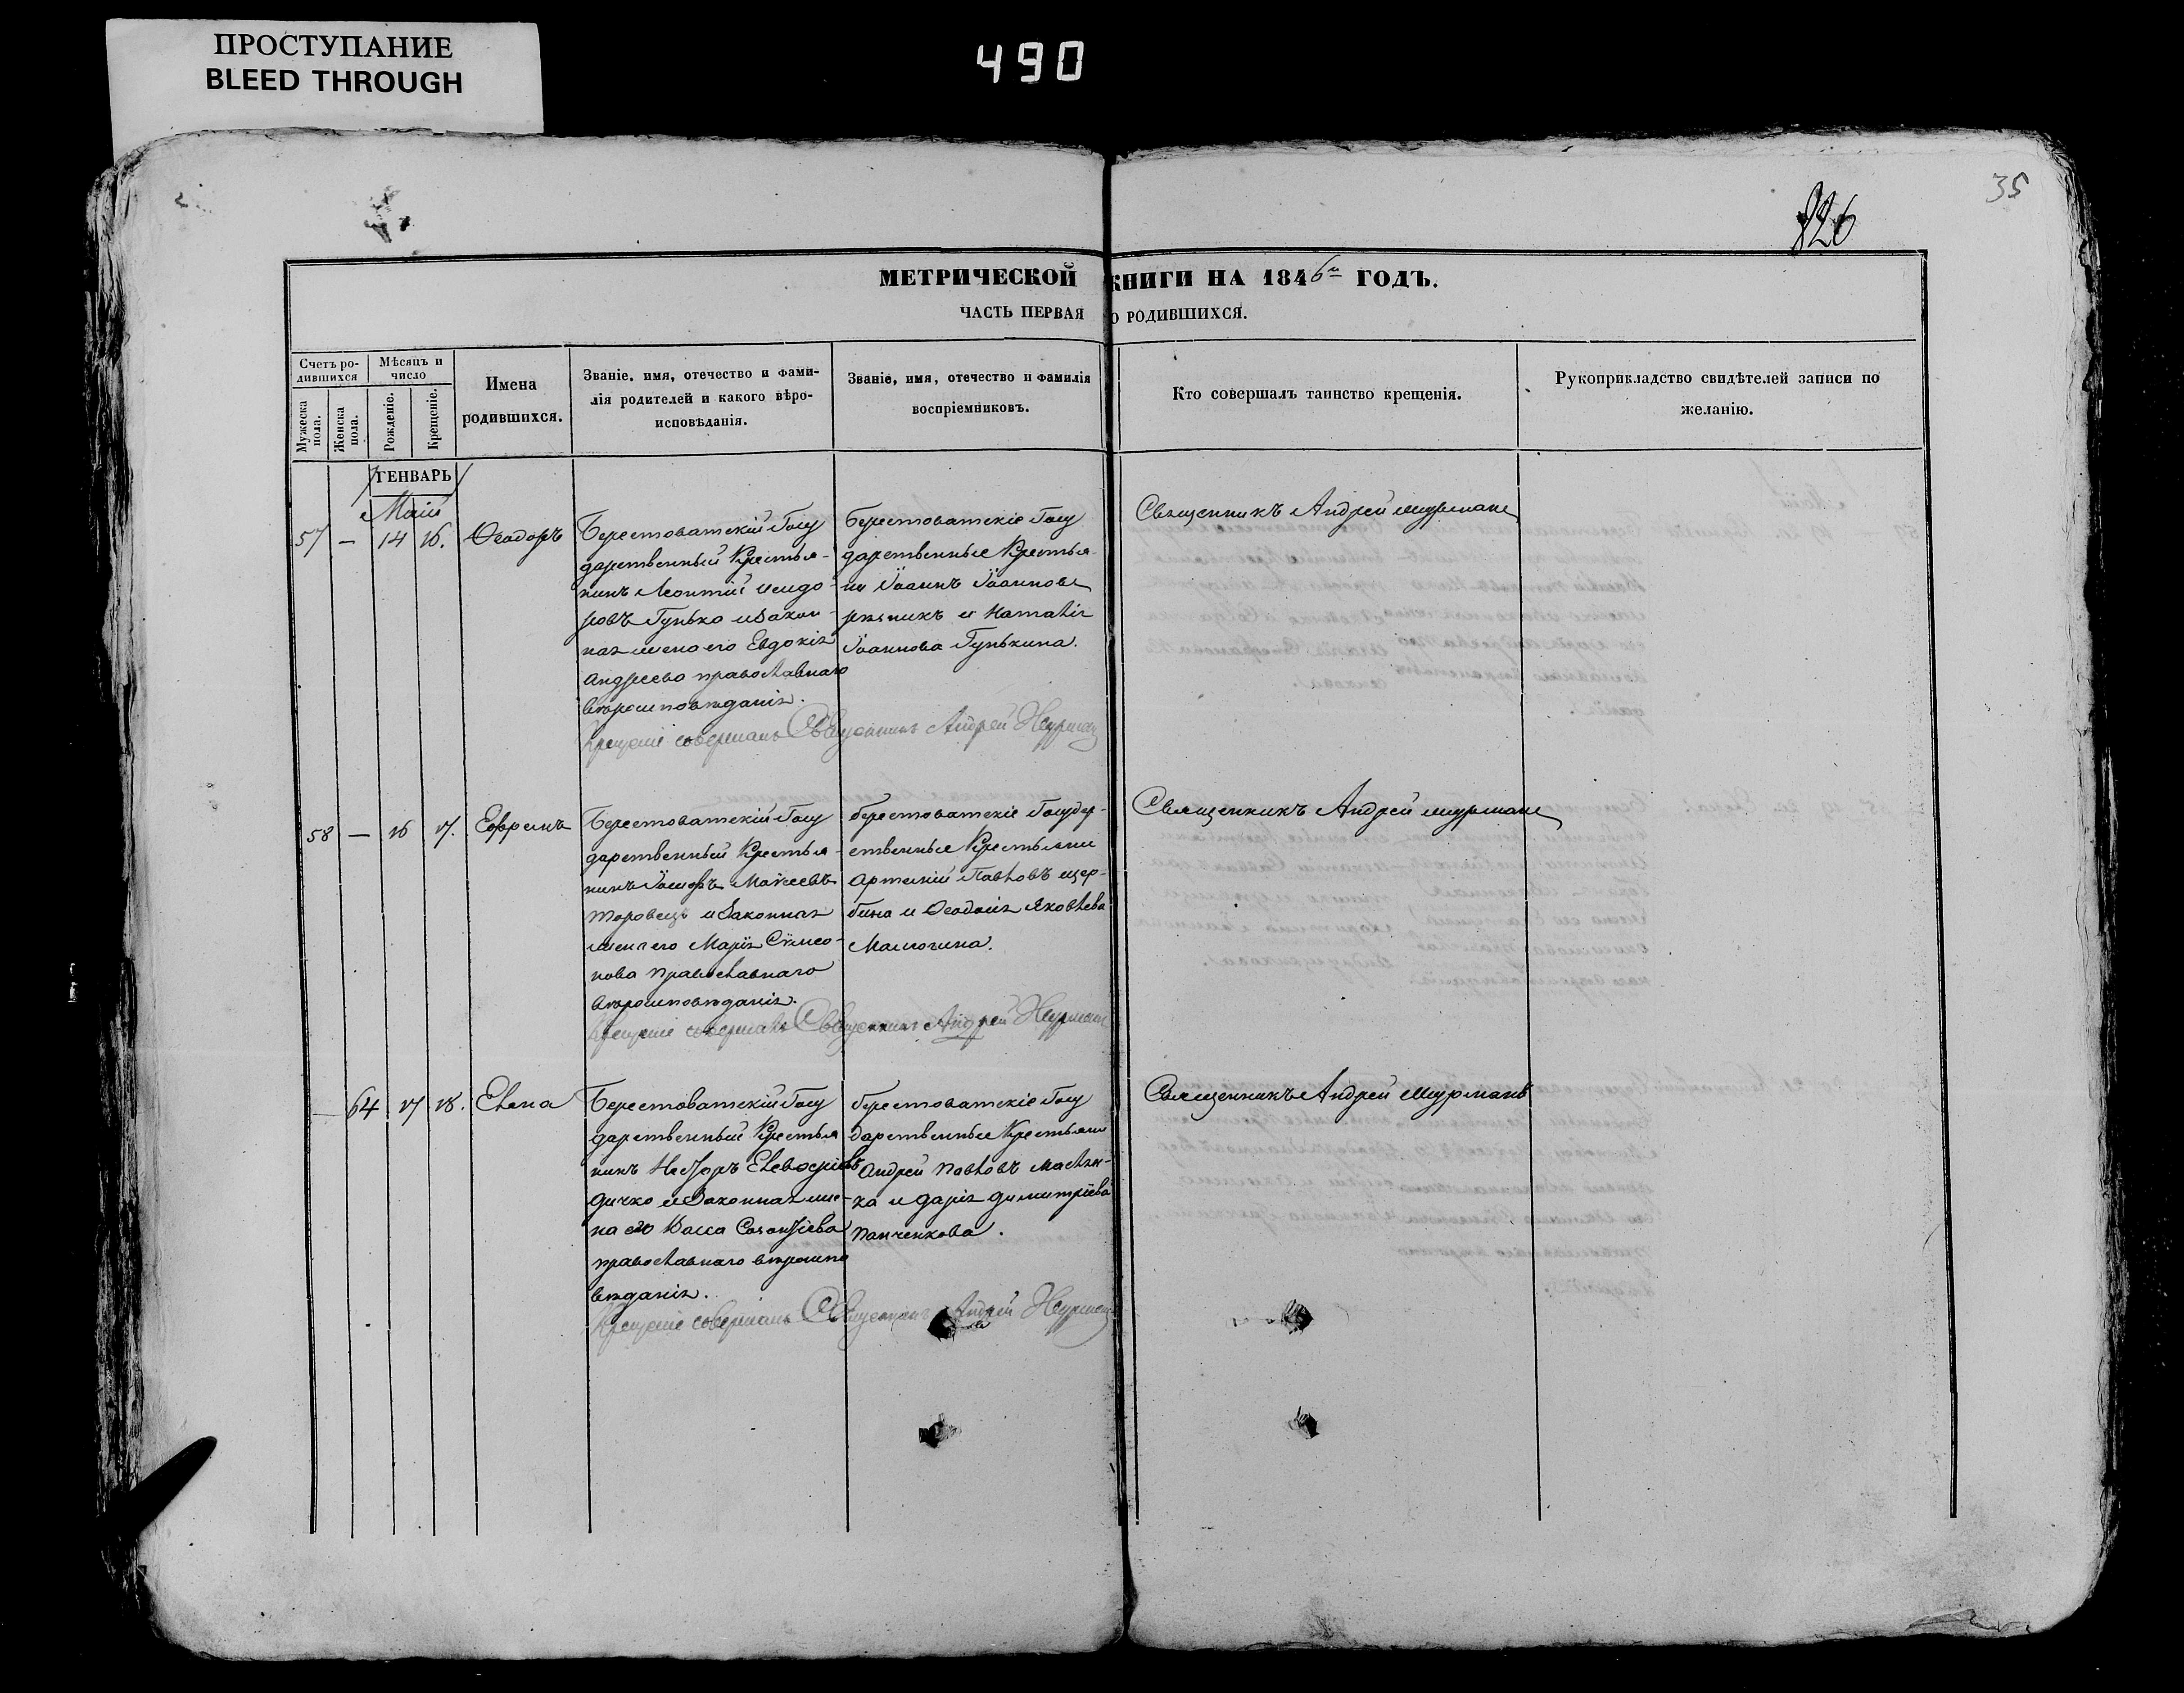 ПРОСТУПАНИЕ
BLEED THROUGH
490
35
826
МЕТРИЧЕСКОЙ КНИГИ НА 1846 ГОДЪ.
ЧАСТЬ ПЕРВАЯ О РОДИВШИХСЯ.
Счетъ ро-
дившихся
Мѣсяцъ и
число
Мужеска
пола.
Женска
пола.
Рожденіе.
Крещеніе.
Имена
родившихся.
Званіе, имя, отечество и фами-
лія родителей и какого вѣро-
исповѣданія.
Званіе, имя, отечество и фамилія
воспріемниковъ.
Кто совершалъ таинство крещенія.
Рукоприкладство свидѣтелей записи по
желанію.
ГЕНВАРЬ
Маій
57 — 14 16. Ѳеодоръ
Берестоватскій Госу
дарственный Крестья-
нинъ Леонтій
Гунько и Закон-
ная жена его Евдокія
Андреева православнаго
вѣроисповѣданія.
Крещеніе совершалъ Священникъ Андрей
Берестоватскіе Госу
дарственные Крестья-
не Іоаннъ Іоанновъ
и Наталія
Іоаннова Гунькина.
Священникъ Андрей
58 — 16 17. Ефремъ
Берестоватскій Госу
дарственный Крестья-
нинъ Іосифъ Моѵсеевъ
и Законная
жена его Марія Сѵмео-
нова Православнаго
вѣроисповѣданія.
Крещеніе совершалъ Священникъ Андрей
берестоватскіе Государ-
ственные Крестьяне
Артемій Павловъ щер-
бина и Ѳеодосія Яковлева
Священникъ Андрей
— 64 17 18. Елена
Берестоватскій Госу
дарственный Крестья
нинъ Несторъ
и Законная же-
на его Васса
православнаго вѣроиспо
вѣданія.
Крещеніе совершалъ Священникъ Андрей
берестоватскіе Госу
дарственные Крестьяне
Андрей Павловъ
ка и дарія димитріева
Панченкова.
Священникъ Андрей